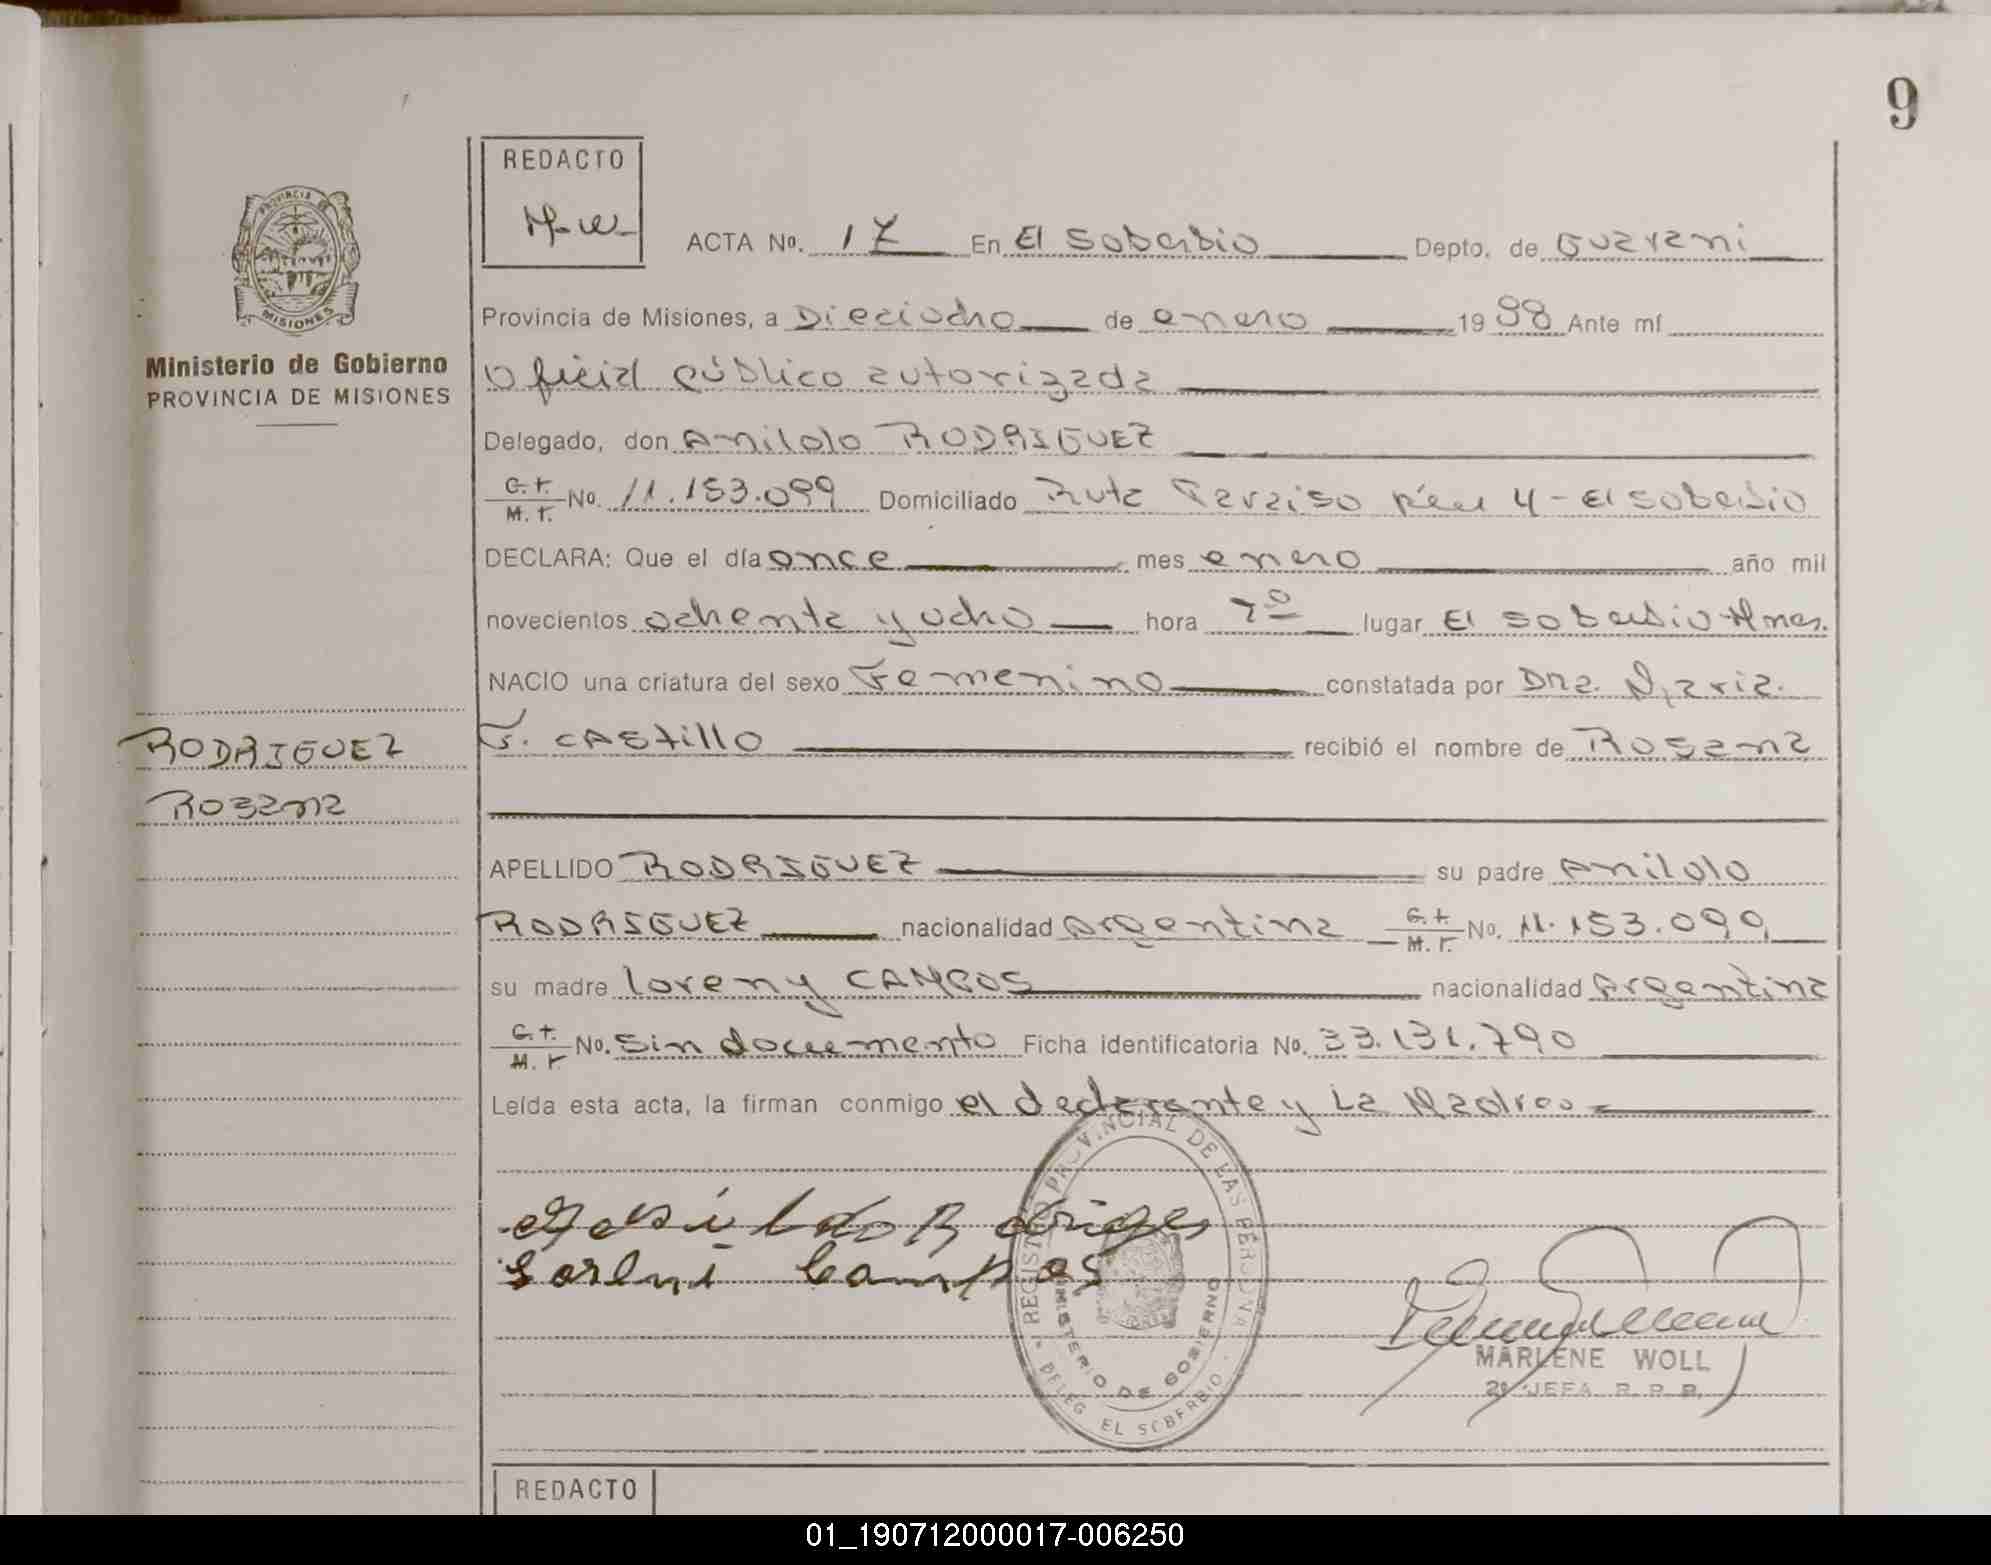 9
REDACTO
M-W-
ACTA No. 17 En El Soberbio Depto. de Guarani
PROVINCIA DE
MISIONES
Ministerio de Gobierno
PROVINCIA DE MISIONES
Provincia de Misiones, a Dieciocho de enero 1988 Ante mí
Oficial público autorizada
Delegado, don Anildo RODRIGUEZ
C.I. M.I. No. 11.153.099 Domiciliado Ruta Paraiso Km 4 - El Soberbio
DECLARA: Que el día once mes enero año mil
novecientos ochenta y ocho hora 7º lugar El Soberbio Mnes.
NACIO una criatura del sexo Femenino constatada por Dña. Maria
F. CAStillo recibió el nombre de Rosana
RODRIGUEZ
Rosana
APELLIDO RODRIGUEZ su padre Anildo
RODRIGUEZ nacionalidad Argentina C.I. M.I. No. 11.153.099
su madre Loreny CAMPOS nacionalidad Argentina
C.I. M.I. No. Sin documento Ficha identificatoria No. 33.131.790
Leída esta acta, la firman conmigo el declarante y La Madre
Rodriges
Campos
REGISTRO PROVINCIAL DE LAS PERSONAS
MINISTERIO DE GOBIERNO
DELEG EL SOBERBIO
MARLENE WOLL
2º JEFA R. P. P.
REDACTO
01_190712000017-006250